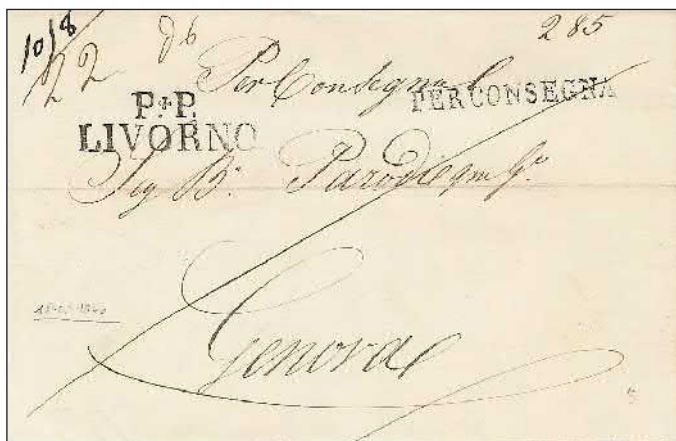 10/8
22 96 285
Per Consegna
PER CONSEGNA
P.P.
LIVORNO
Sig B. Parodi qm Go.
Genova